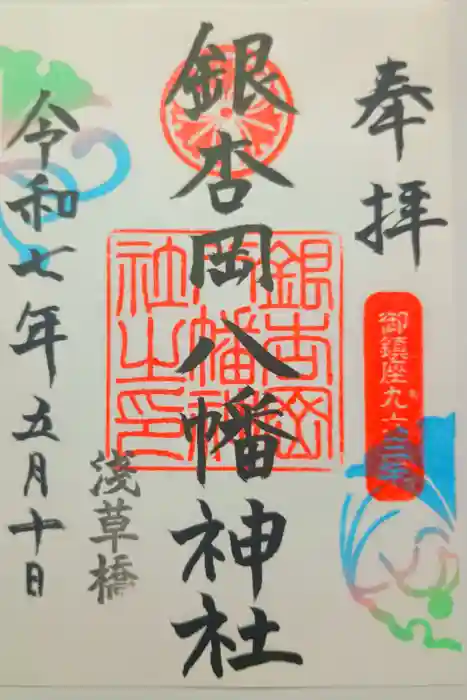 奉拝
御鎮座九六三年
銀杏岡八幡神社
銀杏岡八幡神社之印
浅草橋
令和七年五月十日